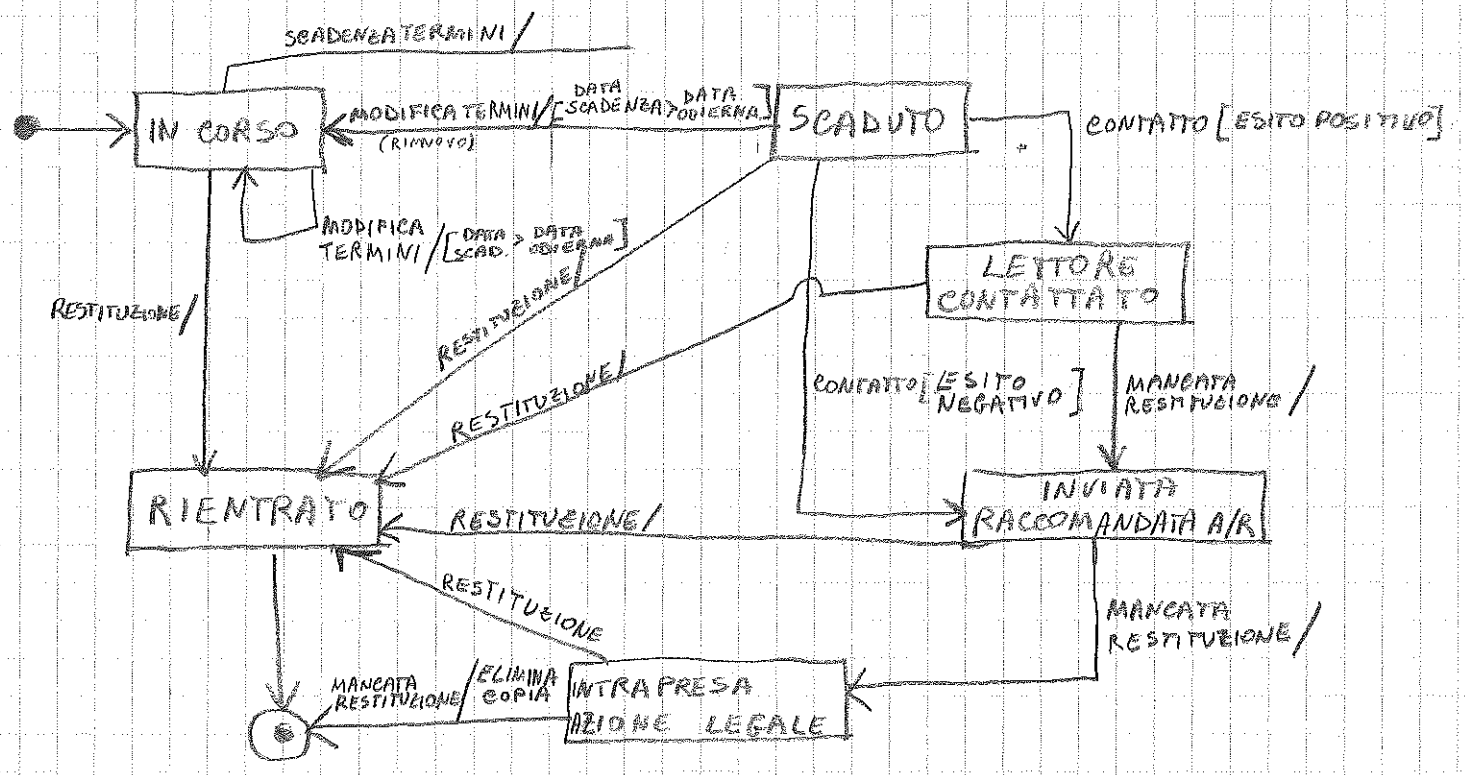 SCADENZA TERMINI /
IN CORSO
MODIFICA TERMINI / [DATA SCADENZA > DATA ODIERNA]
(RINNOVO)
SCADUTO
CONTATTO [ESITO POSITIVO]
MODIFICA
TERMINI / [DATA SCAD. > DATA ODIERNA]
RESTITUZIONE /
RESTITUZIONE /
LETTORE
CONTATTATO
RESTITUZIONE /
CONTATTO [ESITO
NEGATIVO]
MANCATA
RESTITUZIONE /
RIENTRATO
RESTITUZIONE /
INVIATA
RACCOMANDATA A/R
RESTITUZIONE
MANCATA
RESTITUZIONE /
MANCATA
RESTITUZIONE / ELIMINA COPIA
INTRAPRESA
AZIONE LEGALE